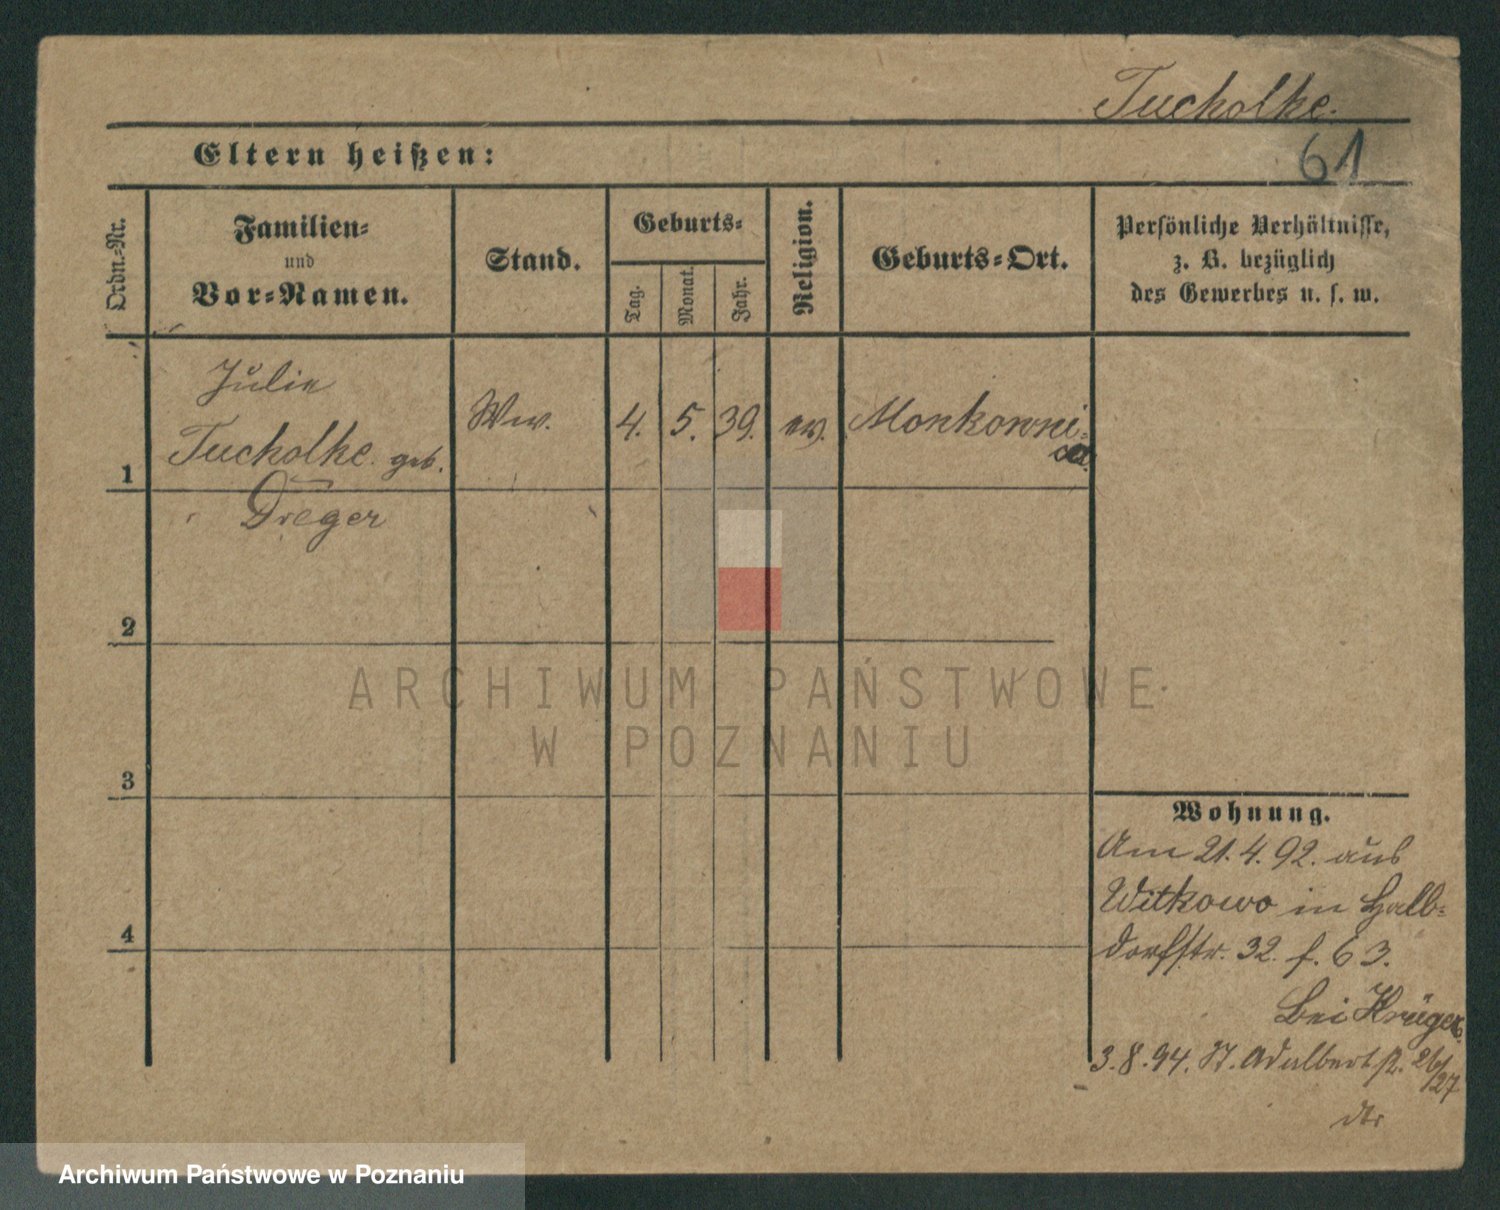 Tucholke.
61
Eltern heißen:
Ordn.-Nr.
Familien-
und
Vor-Namen.
Stand.
Geburts-
Tag.
Monat.
Jahr.
Religion.
Geburts-Ort.
Persönliche Verhältnisse,
z. B. bezüglich
des Gewerbes u. s. w.
1
Julie
Tucholke geb.
Dreger
Ww.
4.
5.
39.
ev.
Monkowni-
2
3
4
Wohnung.
Am 21.4.92. aus
Witkowo in Halb-
dorfstr. 32. f. 63.
Bei Krüger.
3.8.94. St. Adalbertst. 26/27
ARCHIWUM PAŃSTWOWE
W POZNANIU
Archiwum Państwowe w Poznaniu